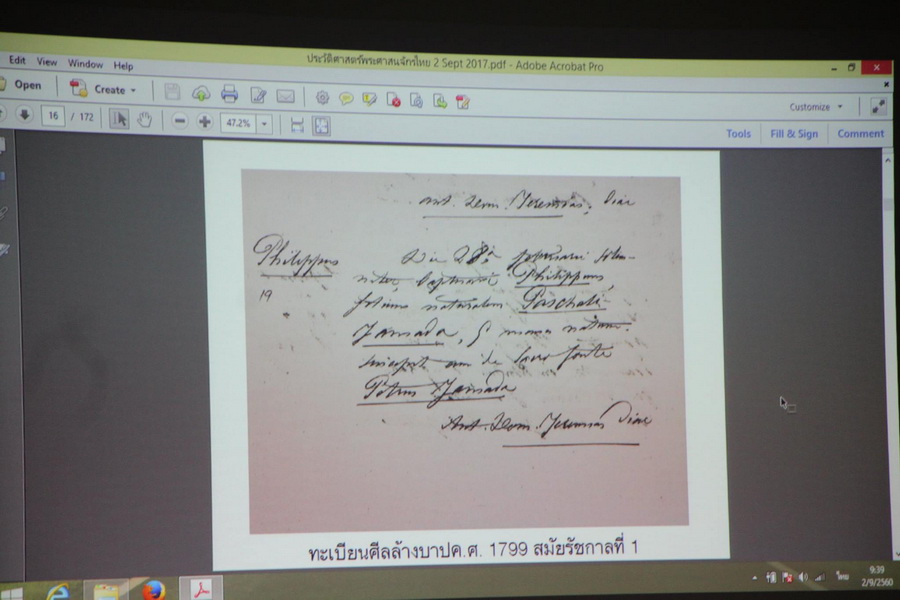 ประวัติศาสตร์พระศาสนจักรไทย 2 Sept 2017.pdf - Adobe Acrobat Pro
Edit View Window Help
Open Create Customize
16 / 172 47.2% Tools Fill & Sign Comment
Ant. Dom. Jeremias, Diac
Philippus
19
Die 28ª
Baptisavi Philippum
naturalem Paschali
Jamada, &
de sacro fonte
Petrus Jamada
Ant. Dom. Jeremias Diac
ทะเบียนศีลล้างบาปค.ศ. 1799 สมัยรัชกาลที่ 1
9:39
2/9/2560